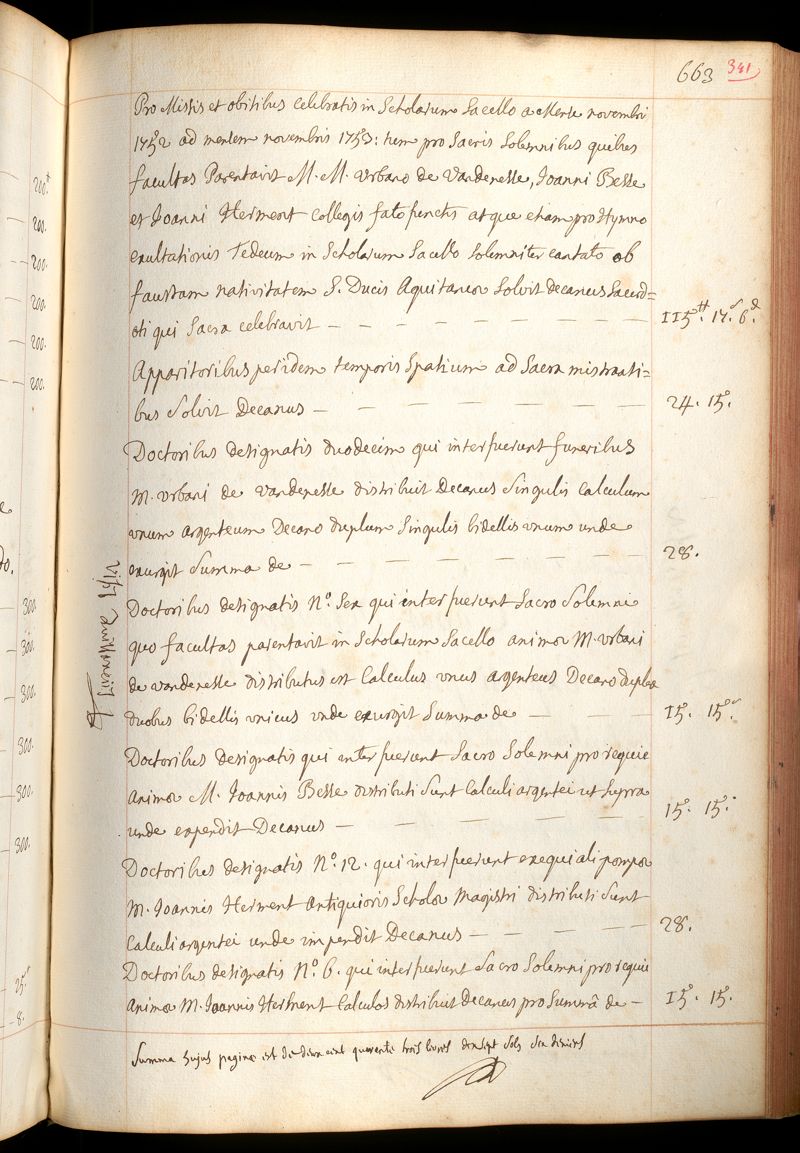 663 341
Pro Missis et obitibus celebratis in Scholarum Sacello a Mense novembri
1752 ad mensem novembris 1753: tum pro Sacris Solemnibus quibus
facultas Parentavit M. M. urbano de Vandenesse, Joanni Besse
et Joanni Herment Collegis fato functis atque etiam pro Hymno
exultationis Tedeum in Scholarum Sacello Solemniter cantato ob
faustam nativitatem S. Ducis Aquitaniæ Solvit decanus Sacerd=
oti qui Sacra celebravit — 115tt. 17s. 6d.
Apparitoribus per idem temporis Spatium ad Sacra mistranti=
bus Solvit Decanus — 24. 15.
Doctoribus designatis duodecim qui interfuerunt funeribus
M. urbani de vandenesse distribuit Decanus Singulis Calculum
unum argenteum Decano duplum Singulis bidellis unum unde
exurgit Summa de — 28.
Doctoribus designatis N.o Sex qui interfuerunt Sacro Solemni
quo facultas parentavit in Scholarum Sacello animæ M. urbani
de vandenesse distributus est Calculus unus argenteus Decano duplex
duobus bidellis unicus unde exurgit Summa de — 15. 15s.
Doctoribus designatis qui interfuerunt Sacro Solemni pro requie
animæ M. Joannis Besse distributi Sunt Calculi argentei ut Supra
unde expendit Decanus — 15. 15.
Doctoribus designatis N.o 12. qui interfuerunt exequiali pompæ
M. Joannis Herment Antiquioris Scholæ Magistri distributi Sunt
Calculi argentei unde impendit Decanus — 28.
Doctoribus designatis N.o 6. qui interfuerunt Sacro Solemni pro requie
animæ M. Joannis Herment Calculos distribuit Decanus pro Summâ de — 15. 15.
Summa hujus paginæ est de deux cent quarente trois livres dixsept sols six deniers
200tt
200.
200.
200.
200.
200.
300
300.
300.
300.
300.
300.
25s
8.